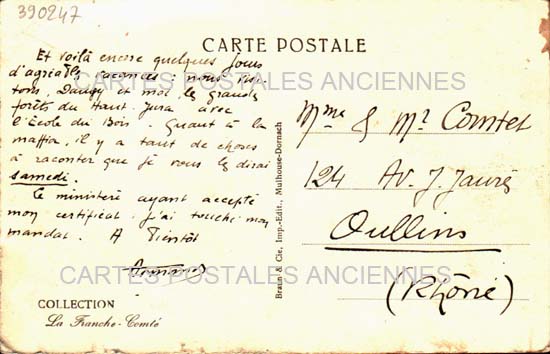 390247
CARTE POSTALE
Et voilà encore quelques jours
d'agréables vacances : nous visi-
tons, Danny et moi, les grandes
forêts du Haut-Jura avec
l'École du Bois. Quant à la
maffia, il y a tant de choses
à raconter que je vous les dirai
samedi.
Le ministère ayant accepté
mon certificat, j'ai touché mon
mandat. A Bientôt
Mme & Mr Comtet
124 Av. J. Jaurès
Oullins
(Rhône)
Braun & Cie, Imp.-Edit., Mulhouse-Dornach
COLLECTION
La Franche-Comté
CARTES POSTALES ANCIENNES
CARTES POSTALES ANCIENNES